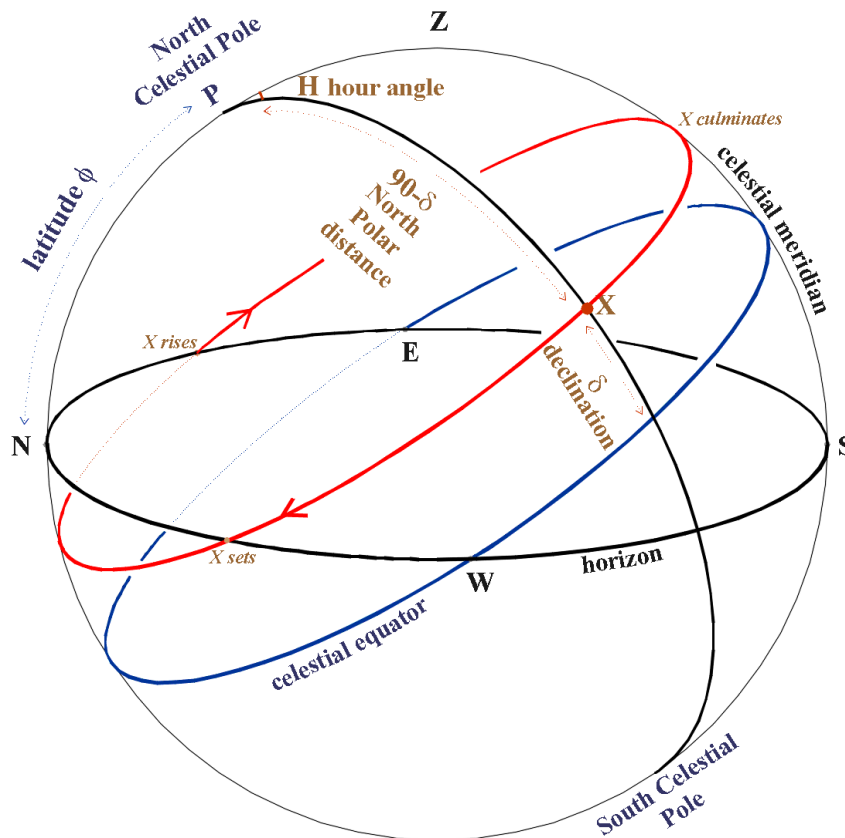 Z
North
Celestial Pole
P
H hour angle
X culminates
celestial meridian
latitude ϕ
90-δ
North
Polar
distance
X rises
E
X
δ
declination
N
S
X sets
W
horizon
celestial equator
South Celestial
Pole